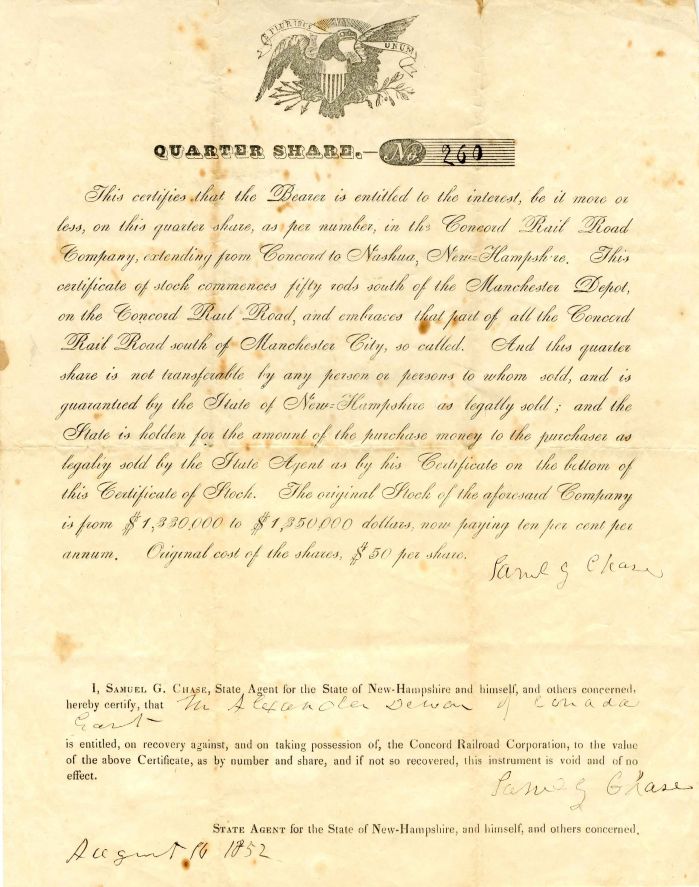 E PLURIBUS UNUM
QUARTER SHARE.— No. 260
This certifies that the Bearer is entitled to the interest, be it more or
less, on this quarter share, as per number, in the Concord Rail Road
Company, extending from Concord to Nashua, New=Hampshire. This
certificate of stock commences fifty rods south of the Manchester Depot,
on the Concord Rail Road, and embraces that part of all the Concord
Rail Road south of Manchester City, so called. And this quarter
share is not transferable by any person or persons to whom sold, and is
guarantied by the State of New=Hampshire as legally sold; and the
State is holden for the amount of the purchase money to the purchaser as
legally sold by the State Agent as by his Certificate on the bottom of
this Certificate of Stock. The original Stock of the aforesaid Company
is from $1,330,000 to $1,350,000 dollars, now paying ten per cent per
annum. Original cost of the shares, $50 per share.
Saml G Chase
I, SAMUEL G. CHASE, State Agent for the State of New-Hampshire and himself, and others concerned,
hereby certify, that Mr Alexander of Canada
East
is entitled, on recovery against, and on taking possession of, the Concord Railroad Corporation, to the value
of the above Certificate, as by number and share, and if not so recovered, this instrument is void and of no
effect.
Saml G Chase
STATE AGENT for the State of New-Hampshire, and himself, and others concerned.
August 16 1852